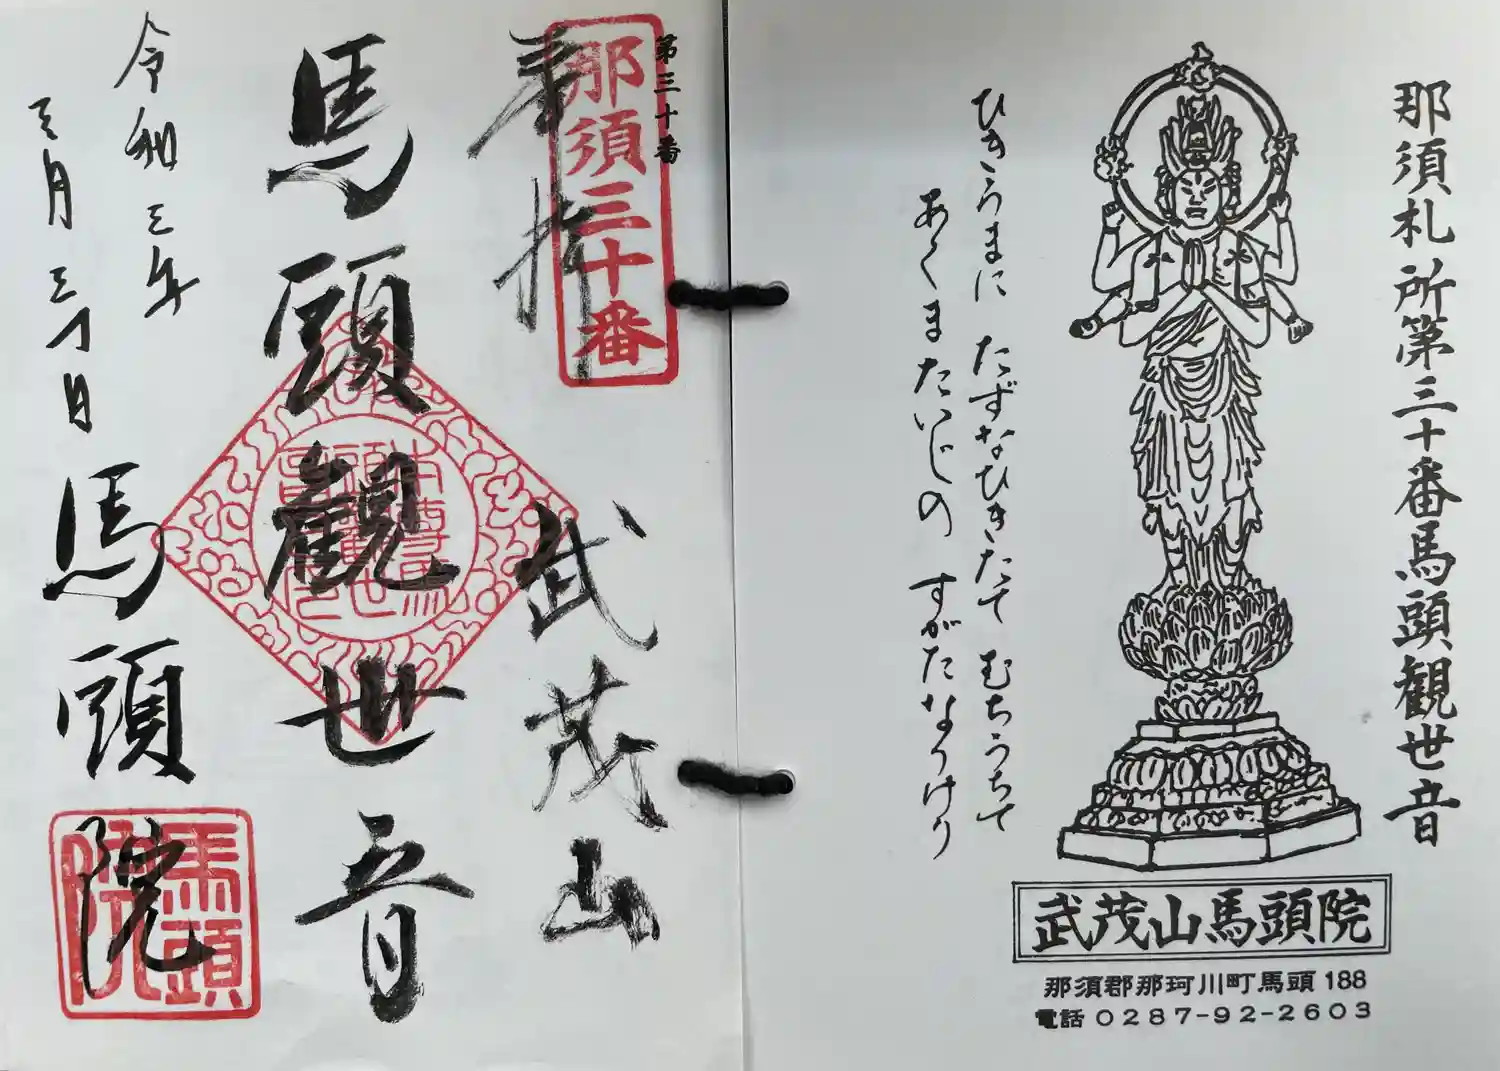 那須札所第三十番馬頭観世音
ひきうまに たずなひきたて むちうちて
あくまたいじの すがたなりけり
武茂山馬頭院
那須郡那珂川町馬頭188
電話0287-92-2603
第三十番
那須三十番
奉拝
武茂山
馬頭観世音
令和三年
三月三十日
馬頭院
馬頭院